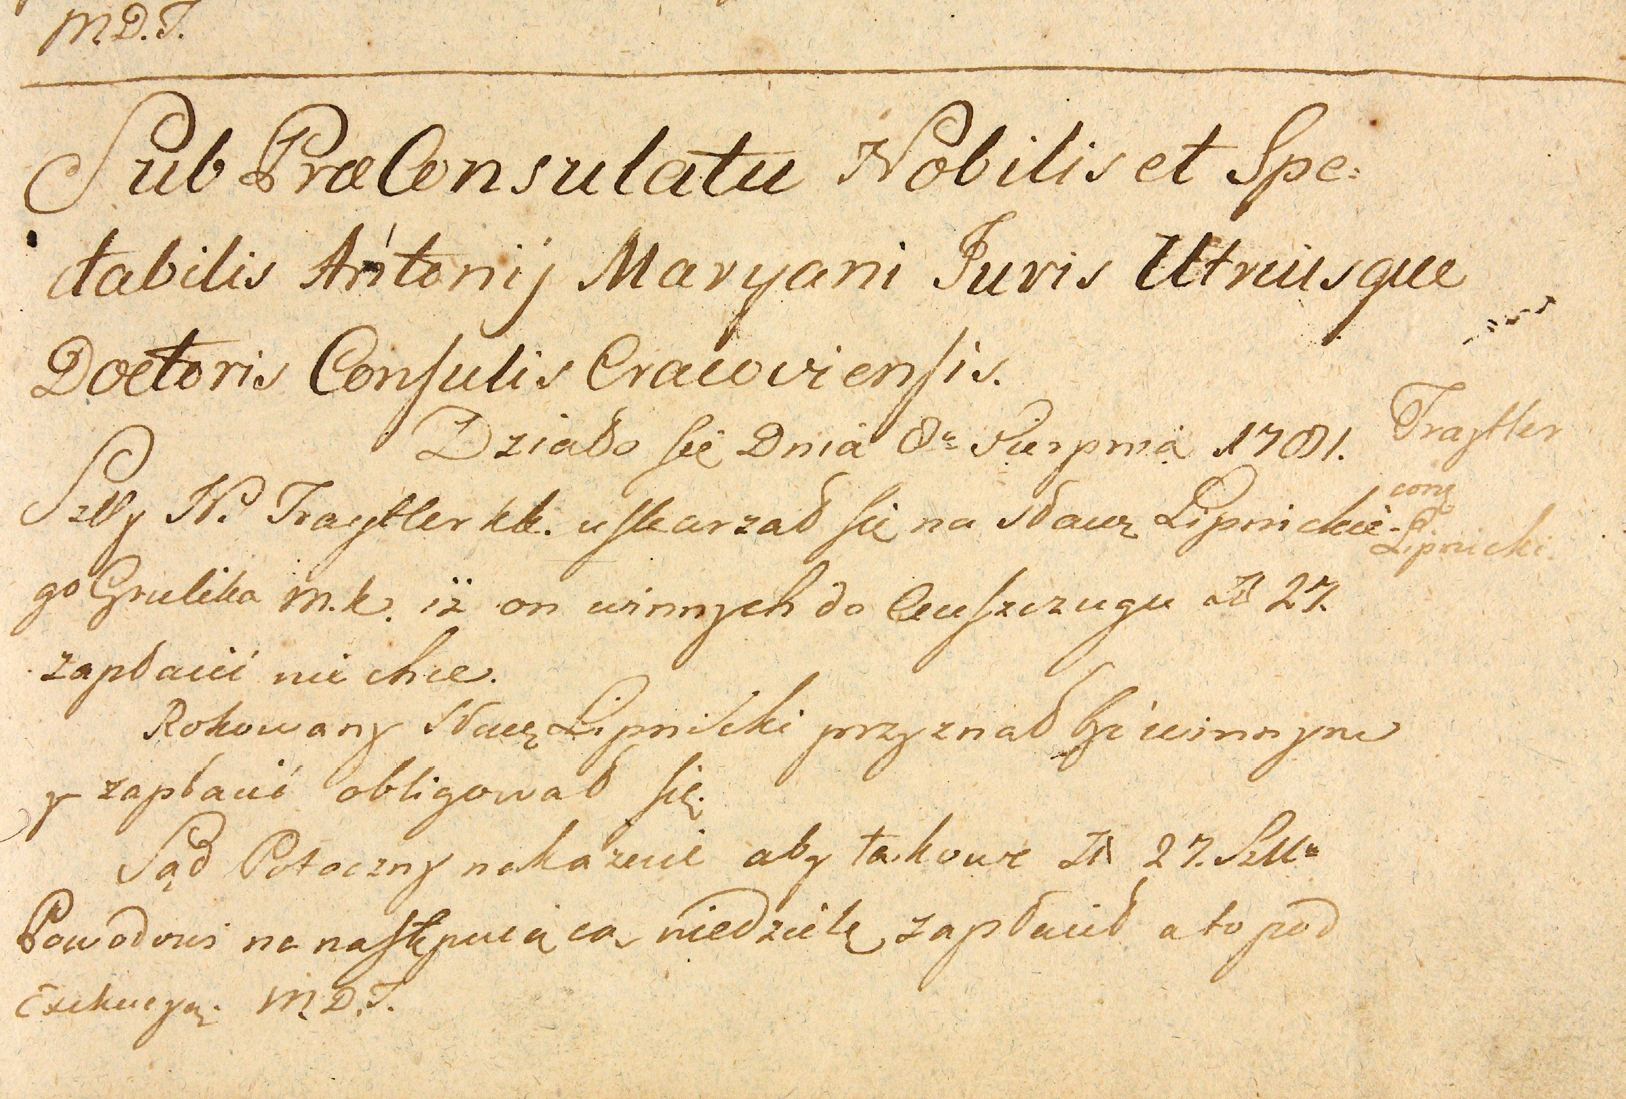 M.D.T.
Sub PræConsulatu Nobilis et Spe=
ctabilis Antonij Maryani Juris Utriusque
Doctoris Consulis Cracoviensis.
Działo się Dnia 8. Sierpnia 1781.
N. Traytler kk. uskarzał się na Sławę Lipnickie-
go Grulika m.k. iż on winnych do Cuszczugu Zł 27.
zapłacić nie chce.
Rokowany Sławę Lipnicki przyznał być winnym
y zapłacić obligował się.
Sąd Potoczny nakazuie aby takowe Zł 27.
Powodowi na następuiącą niedzielę zapłacił a to pod
Exekucyą. M.D.T.
Traytler
cong
Lipnicki